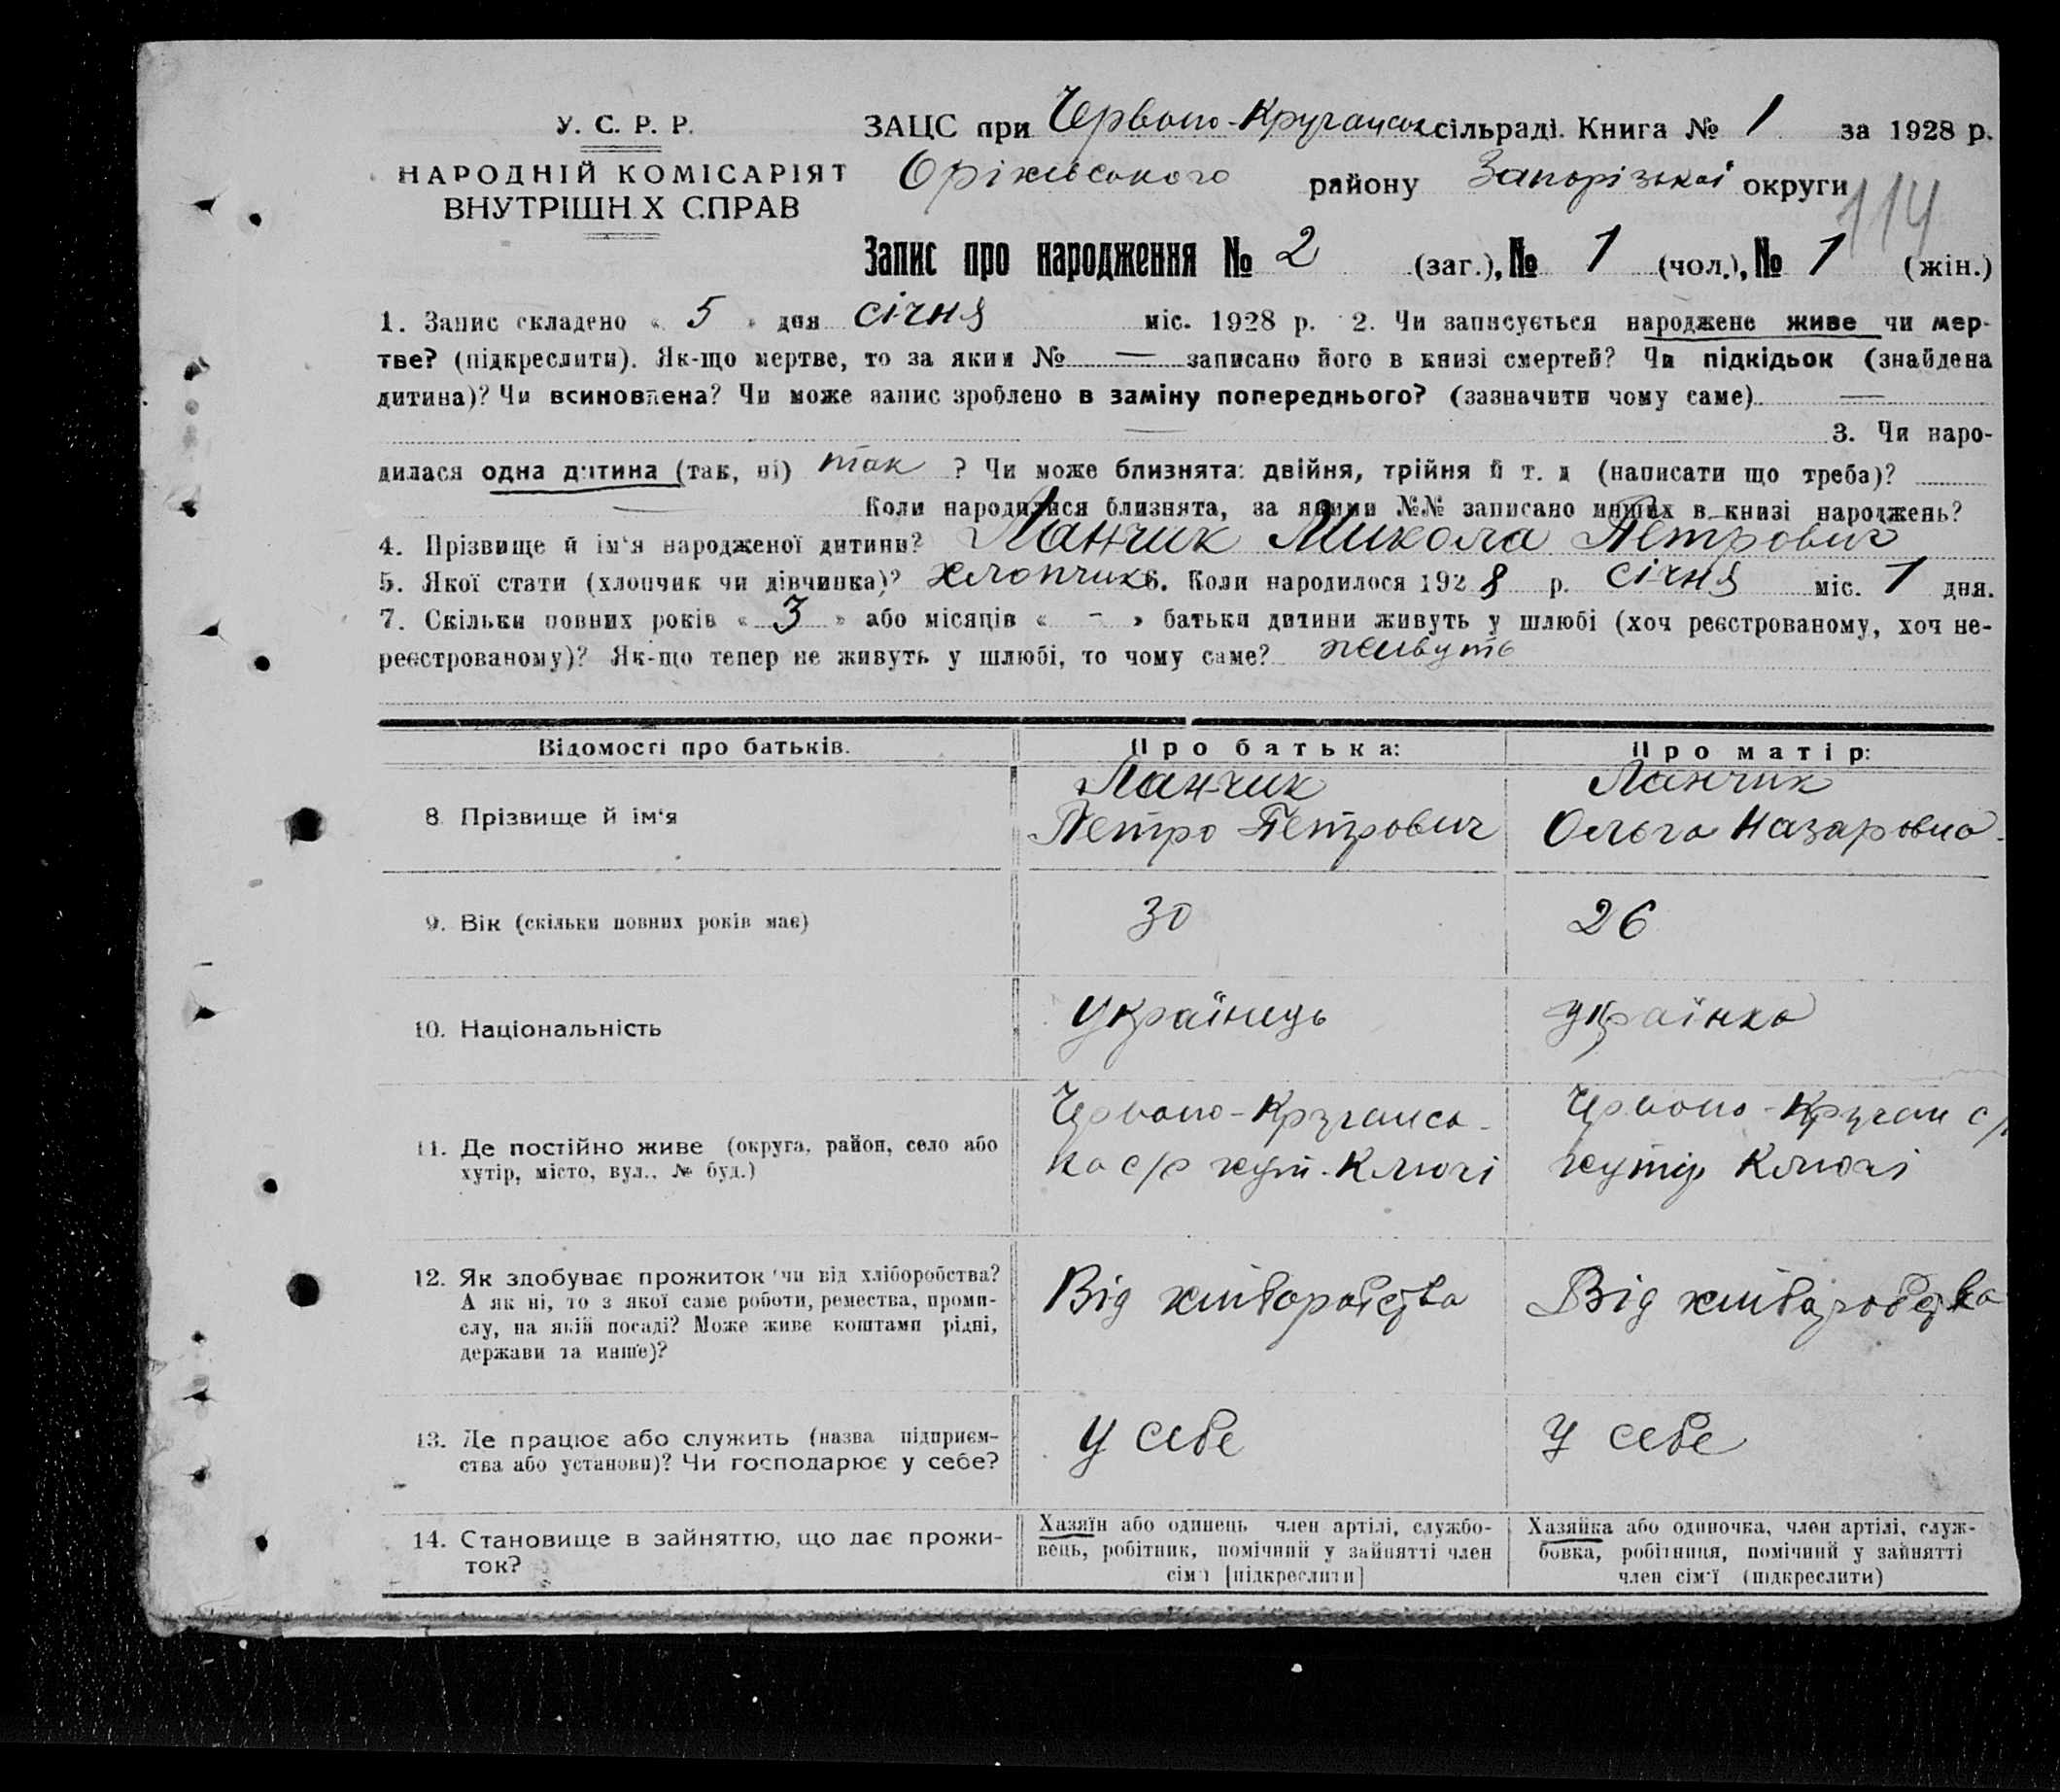 У. С. Р. Р.
НАРОДНІЙ КОМІСАРІЯТ
ВНУТРІШН Х СПРАВ
ЗАЦС при Червоно-Кругансь сільраді. Книга № 1 за 1928 р.
Оріхівського району Запорізької округи
114
Запис про народження № 2 (заг.), № 1 (чол.), № 1 (жін.)
1. Запис складено « 5 » дня січня міс. 1928 р. 2. Чи записується народжене живе чи мер-
тве? (підкреслити). Як-що мертве, то за яким № — записано його в книзі смертей? Чи підкідьок (знайдена
дитина)? Чи всиновлена? Чи може запис зроблено в заміну попереднього? (зазначити чому саме) —
— 3. Чи наро-
дилася одна дитина (так, ні) так ? Чи може близнята: двійня, трійня й т. д (написати що треба)?
— Коли народилися близнята, за якими №№ записано инших в книзі народжень?
4. Прізвище й ім'я народженої дитини? Ланчик Микола Петрович
5. Якої стати (хлопчик чи дівчинка)? хлопчик 6. Коли народилося 1928 р. січня міс. 1 дня.
7. Скільки повних років « 3 » або місяців « - » батьки дитини живуть у шлюбі (хоч реєстрованому, хоч не-
реєстрованому)? Як-що тепер не живуть у шлюбі, то чому саме? живуть
Відомості про батьків. Про батька: Про матір:
8 Прізвище й ім'я
Ланчик
Петро Петрович
Ланчик
Ольга Назаровна
9. Вік (скільки повних років має) 30 26
10. Національність Українець Українка
11. Де постійно живе (округа, район, село або
хутір, місто, вул., № буд.)
Червоно-Кругансь-
ка с/р хут. Ключі
Червоно-Круган с/р
хутір Ключі
12. Як здобуває прожиток чи від хліборобства?
А як ні, то з якої саме роботи, ремества, проми-
слу, на якій посаді? Може живе коштами рідні,
держави та инше)?
Від хліборобства
Від хліборобства
13. Де працює або служить (назва підприєм-
ства або установи)? Чи господарює у себе?
У себе
У себе
14. Становище в зайняттю, що дає прожи-
ток?
Хазяїн або одинець член артілі, службо-
вець, робітник, помічний у зайнятті член
сім'ї [підкреслити]
Хазяйка або одиночка, член артілі, служ-
бовка, робітниця, помічний у зайнятті
член сім'ї (підкреслити)